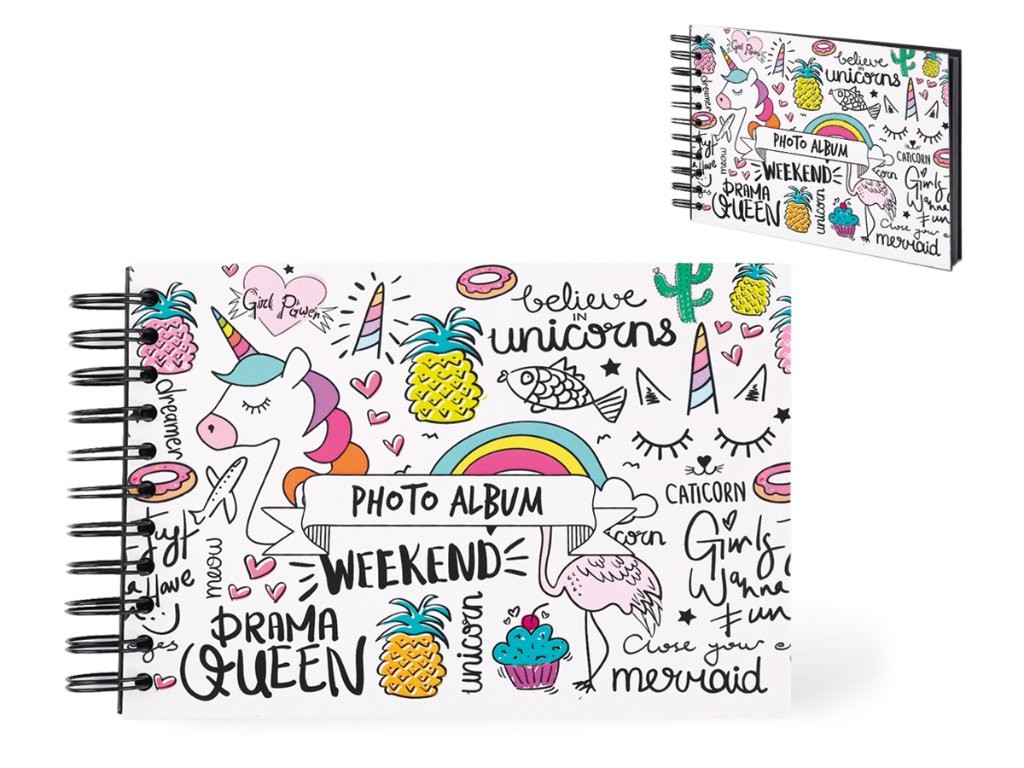 Girl Power
believe
IN
unicorns
dreamer
CATICORN
PHOTO ALBUM
corn
Girls
Wanna
Fun
WEEKEND
Just
Have
meow
DRAMA
QUEEN
unicorn
Close your e
mermaid
Girl Power
believe
IN
unicorns
dreamer
PHOTO ALBUM
CATICORN
WEEKEND
corn
Girls
Wanna
Fun
Have
meow
DRAMA
QUEEN
unicorn
mermaid